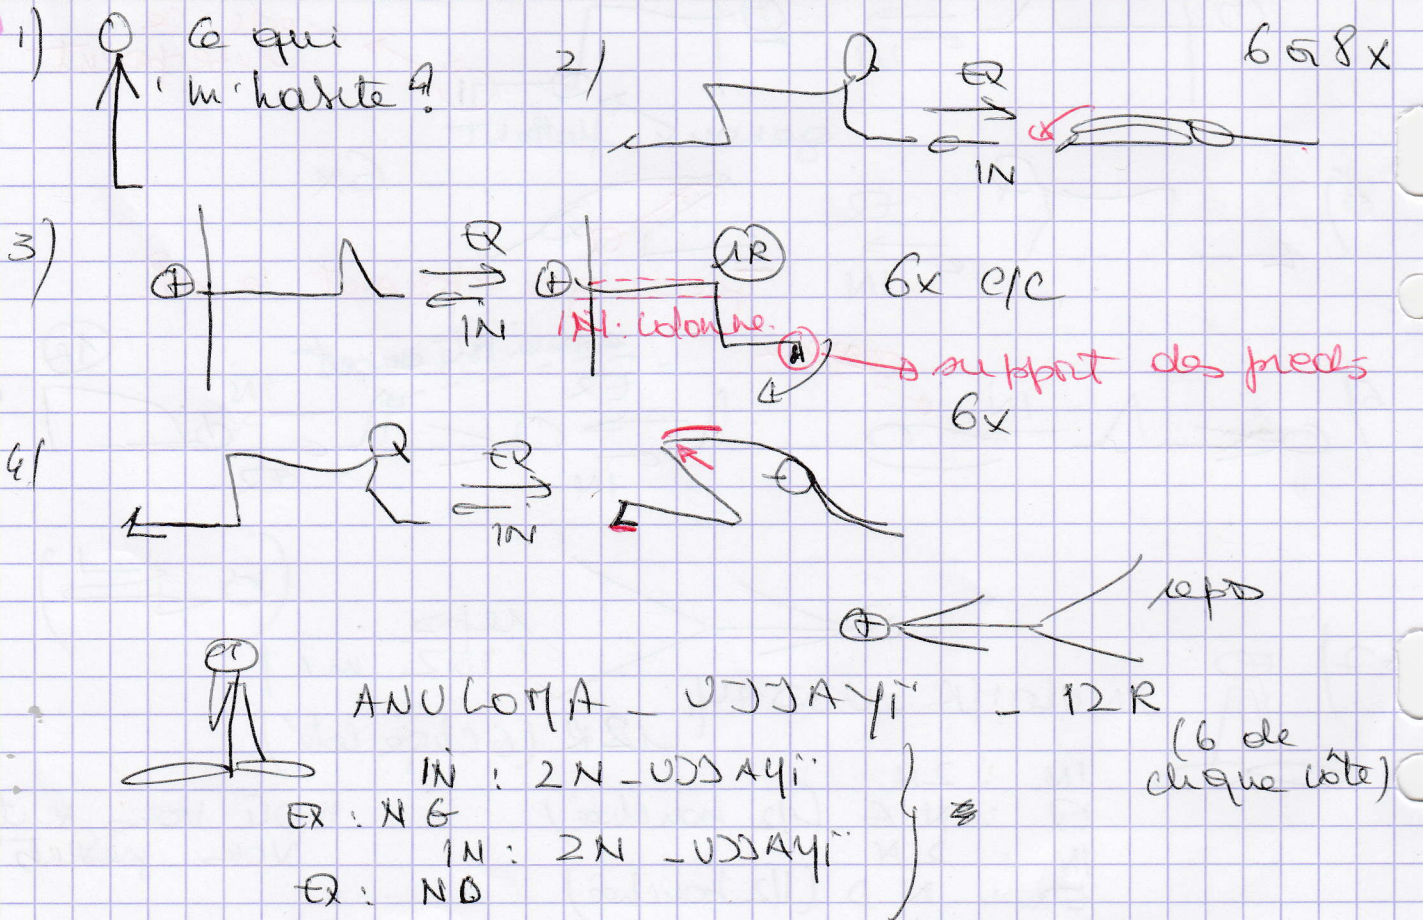 1) Ce qui
m'habite ?
2) EX IN 6 à 8 x
3) EX IN 1R 6x c/c
IN : colonne.
→ support des pieds
6x
4) EX IN
repos
ANULOMA - UJJAYÏ - 12R
(6 de
chaque côté)
IN : 2N - UJJAYÏ
EX : NG
IN : 2N - UJJAYÏ
EX : ND